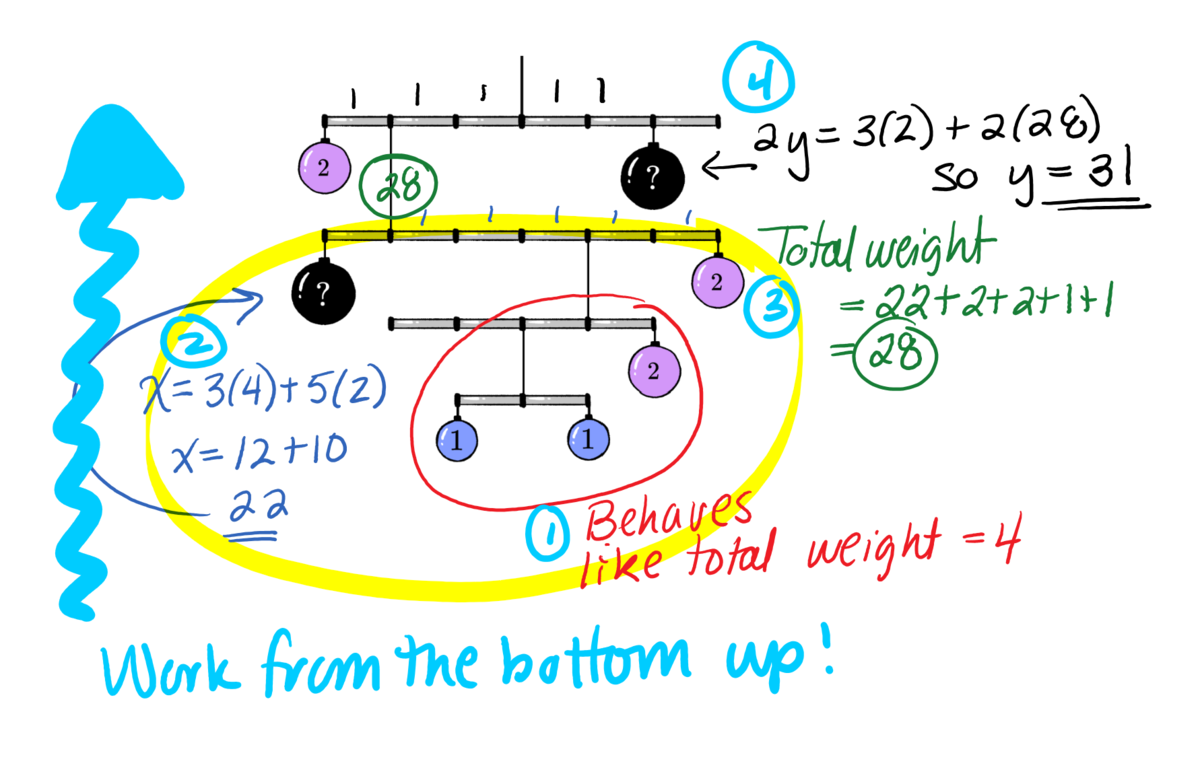 1 1 1 1 1
4
2y = 3(2) + 2(28)
so y = 31
2
28
?
1 1 1 1 1
Total weight
= 22+2+2+1+1
= 28
?
2
3
2
x = 3(4) + 5(2)
x = 12+10
22
2
1
1
1
Behaves
like total weight = 4
Work from the bottom up!